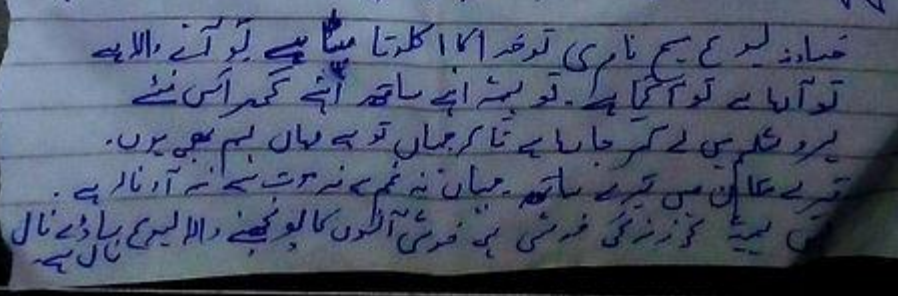 خداوند یسوع مسیح ناصری تو خدا کا اکلوتا بیٹا ہے تو آنے والا ہے
تو آ رہا ہے تو آ گیا ہے۔ تو ہمیں اپنے ساتھ اپنے گھر اس نئے
یروشلم میں لے کر جا رہا ہے تا کہ جہاں تو ہے وہاں ہم بھی ہوں۔
تیرے میں تیرے ساتھ۔ جہاں نہ غم ہے نہ موت ہے نہ آہ و نالہ ہے۔
زندگی خوشی ہی خوشی آنسوؤں کا پونچھنے والا یسوع ساڈے نال
نال ہے۔